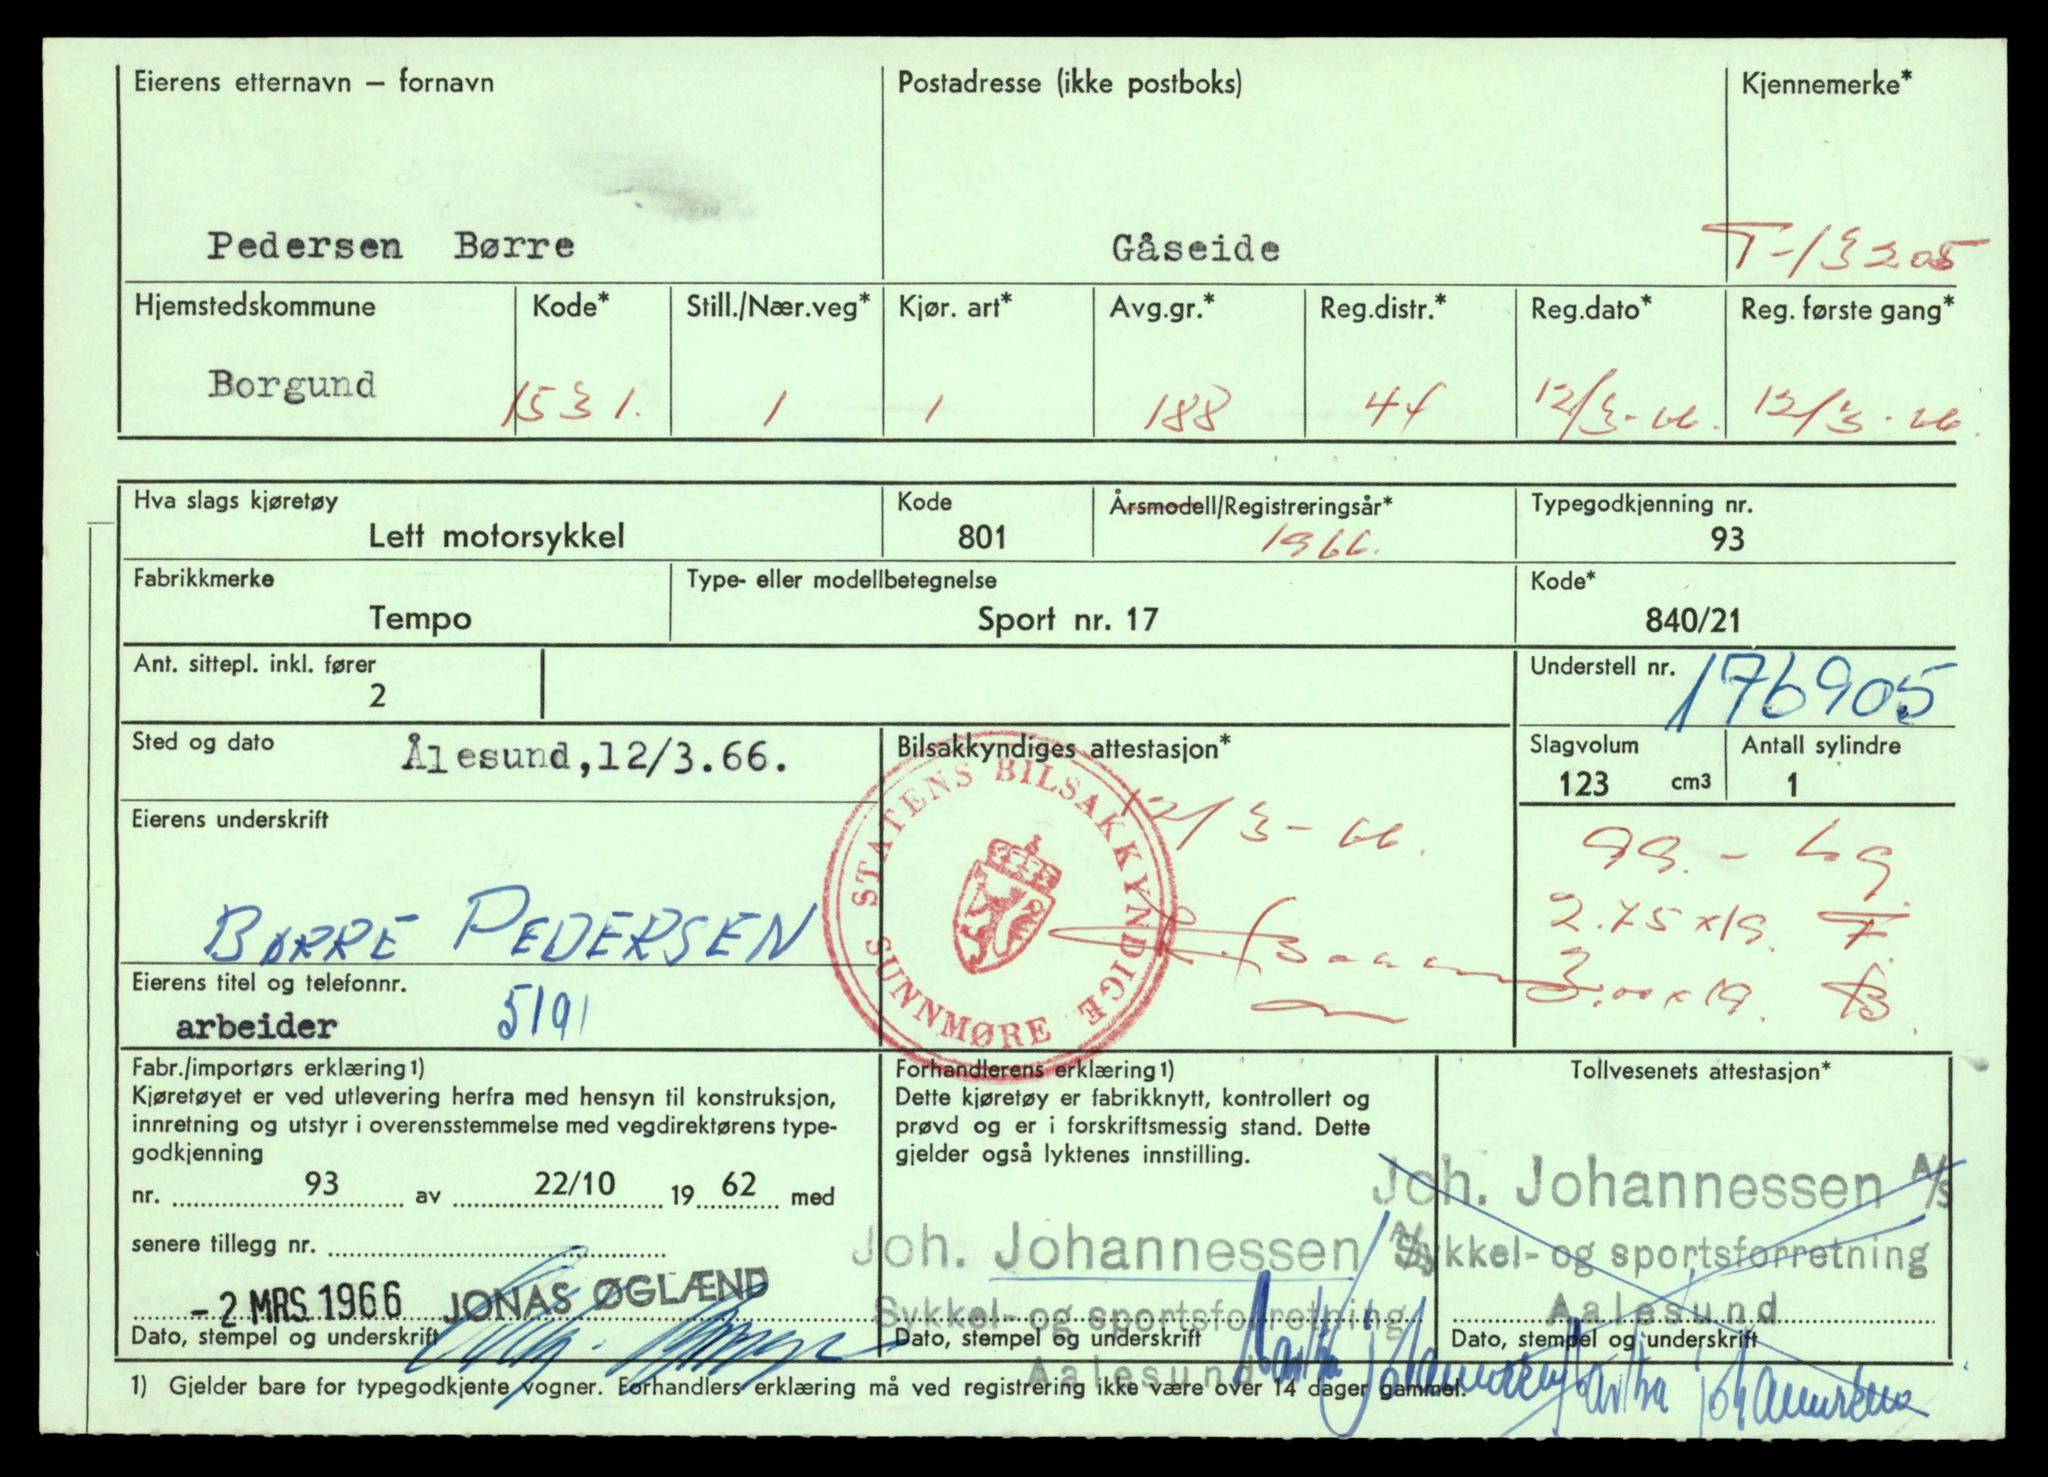 Eierens etternavn – fornavn
Postadresse (ikke postboks)
Kjennemerke*
Pedersen Børre
Gåseide
T-13205
Hjemstedskommune
Kode*
Still./Nær.veg*
Kjør. art*
Avg.gr.*
Reg.distr.*
Reg.dato*
Reg. første gang*
Borgund
1531.
1
1
188
44
12/3-66.
12/3-66.
Hva slags kjøretøy
Kode
Årsmodell/Registreringsår*
Typegodkjenning nr.
Lett motorsykkel
801
1966.
93
Fabrikkmerke
Type- eller modellbetegnelse
Kode*
Tempo
Sport nr. 17
840/21
Ant. sittepl. inkl. fører
2
Understell nr.
176905
Sted og dato
Ålesund,12/3.66.
Bilsakkyndiges attestasjon*
Slagvolum
Antall sylindre
123 cm3
1
STATENS BILSAKKYNDIGE SUNNMØRE
12/3-66.
Eierens underskrift
BØRRE PEDERSEN
99.- kg.
2.75x19. F.
3.00x19. B.
Eierens titel og telefonnr.
arbeider
5191
Fabr./importørs erklæring1)
Kjøretøyet er ved utlevering herfra med hensyn til konstruksjon,
innretning og utstyr i overensstemmelse med vegdirektørens type-
godkjenning
nr. 93 av 22/10 19 62 med
senere tillegg nr.
- 2 MRS 1966 JONAS ØGLÆND
Dato, stempel og underskrift
Forhandlerens erklæring1)
Dette kjøretøy er fabrikknytt, kontrollert og
prøvd og er i forskriftsmessig stand. Dette
gjelder også lyktenes innstilling.
Joh. Johannessen A/S
Sykkel- og sportsforretning
Aalesund
Dato, stempel og underskrift
Martha Johannesen
Tollvesenets attestasjon*
Joh. Johannessen A/S
Sykkel- og sportsforretning
Aalesund
Dato, stempel og underskrift
Martha Johannesen
1) Gjelder bare for typegodkjente vogner. Forhandlers erklæring må ved registrering ikke være over 14 dager gammel.